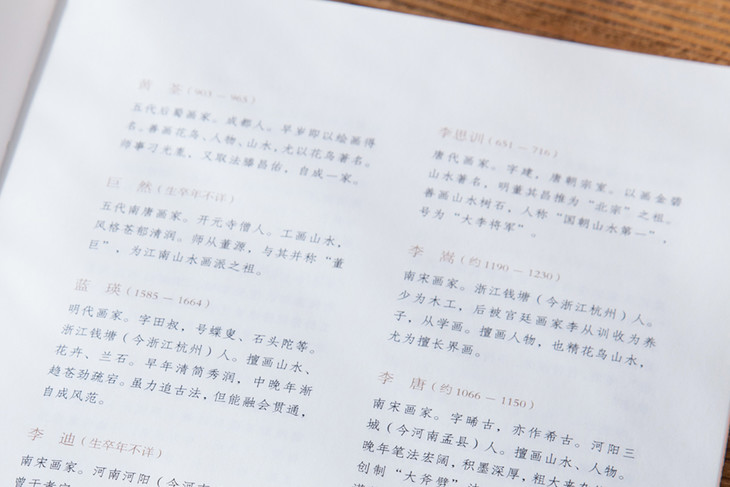 黄 筌（903 — 965）
五代后蜀画家。成都人。早岁即以绘画得
名。善画花鸟、人物、山水，尤以花鸟著名。
师事刁光胤，又取法滕昌佑，自成一家。
巨 然（生卒年不详）
五代南唐画家。开元寺僧人。工画山水，
风格苍郁清润。师从董源，与其并称“董
巨”，为江南山水画派之祖。
蓝 瑛（1585 — 1664）
明代画家。字田叔，号蝶叟、石头陀等。
浙江钱塘（今浙江杭州）人。擅画山水、
花卉、兰石。早年清简秀润，中晚年渐
趋苍劲疏宕。虽力追古法，但能融会贯通，
自成风范。
李 迪（生卒年不详）
南宋画家。河南河阳（今河南
曾于孝宗
李思训（651 — 716）
唐代画家。字建，唐朝宗室。以画金碧
山水著名，明董其昌推为“北宗”之祖。
善画山水树石，人称“国朝山水第一”，
号为“大李将军”。
李 嵩（约1190 — 1230）
南宋画家。浙江钱塘（今浙江杭州）人。
少为木工，后被宫廷画家李从训收为养
子，从学画。擅画人物，也精花鸟山水，
尤为擅长界画。
李 唐（约1066 — 1150）
南宋画家。字晞古，亦作希古。河阳三
城（今河南孟县）人。擅画山水、人物。
晚年笔法宏阔，积墨深厚，粗大
创制“大斧劈”